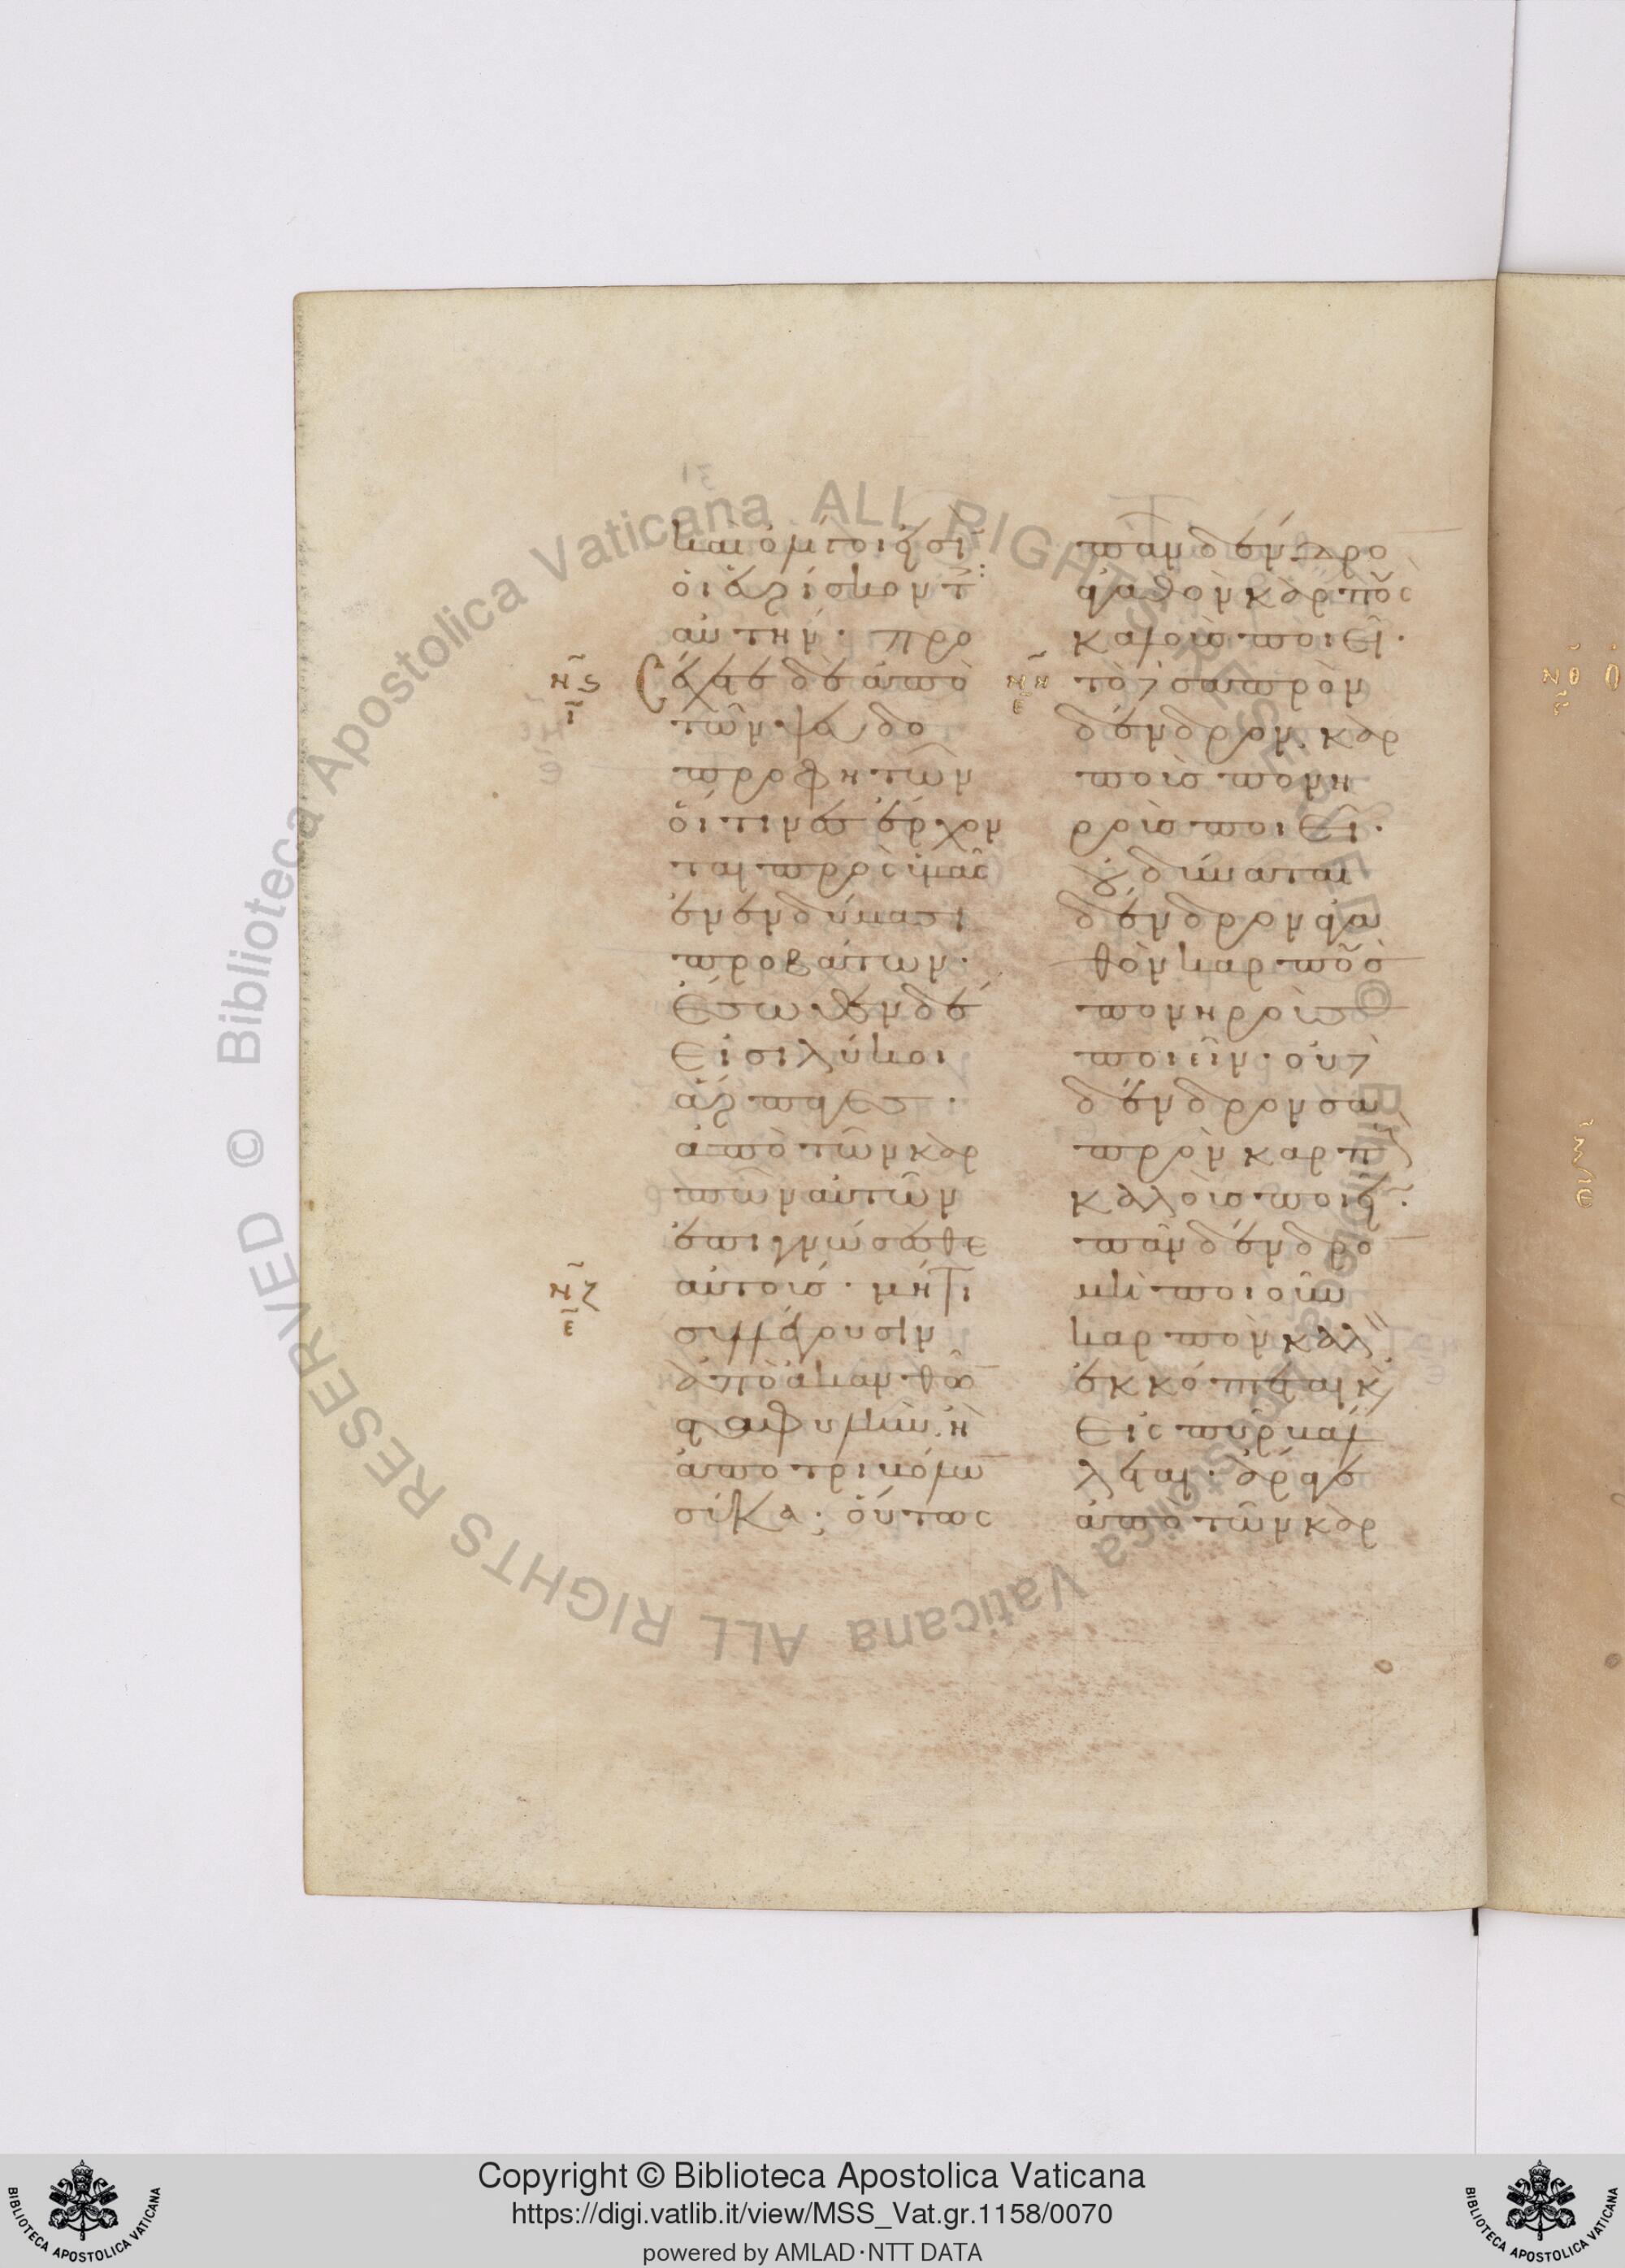 καὶ ὀλίγοι εἰσὶν
οἱ εὑρίσκοντ(ες)
αὐτήν· προ
σέχετε δὲ ἀπὸ
τῶν ψευδο
προφητῶν
οἵτινες ἔρχον
ται πρὸς ὑμᾶς
ἐν ἐνδύμασι
προβάτων·
ἔσωθεν δέ
εἰσι λύκοι
ἅρπαγες·
ἀπὸ τῶν καρ
πῶν αὐτῶν
ἐπιγνώσεσθε
αὐτούς· μήτι
συλλέγουσιν
ἀπὸ ἀκανθῶ
σταφυλὴν ἢ
ἀπὸ τριβόλω
σῦκα; οὕτως
πᾶν δένδρο
ἀγαθὸν καρποὺς
καλοὺς ποιεῖ·
τὸ δὲ σαπρὸν
δένδρον καρ
ποὺς πονη
ροὺς ποιεῖ·
οὐ δύναται
δένδρον ἀγα
θὸν καρποὺς
πονηροὺς
ποιεῖν· οὐδὲ
δένδρον σα
πρὸν καρποὺς
καλοὺς ποιεῖν·
πᾶν δένδρο
μὴ ποιοῦν
καρπὸν καλὸν
ἐκκόπτεται καὶ
εἰς πῦρ βάλ
λεται· ἄραγε
ἀπὸ τῶν καρ
ΝϚ
Ι
ΝΖ
Ε
ΝΗ
Ε
ΝΘ
Copyright © Biblioteca Apostolica Vaticana
https://digi.vatlib.it/view/MSS_Vat.gr.1158/0070
powered by AMLAD·NTT DATA
BIBLIOTECA APOSTOLICA VATICANA
BIBLIOTECA APOSTOLICA VATICANA
© Biblioteca Apostolica Vaticana ALL RIGHTS RESERVED
© Biblioteca Apostolica Vaticana ALL RIGHTS RESERVED